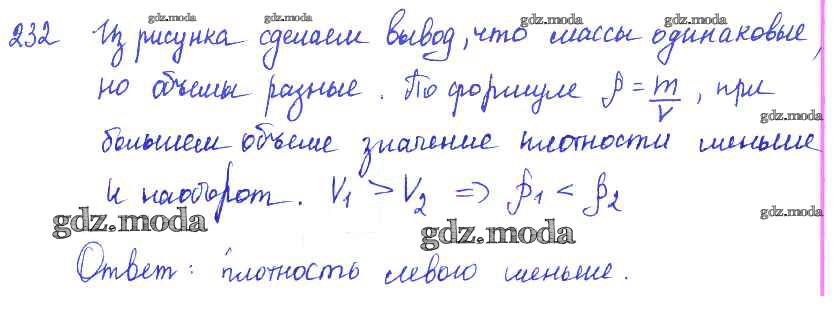 232 Из рисунка сделаем вывод, что массы одинаковые,
но объемы разные. По формуле ρ = m/V, при
большем объеме значение плотности меньше
и наоборот. V₁ > V₂ => ρ₁ < ρ₂
Ответ: плотность левого меньше.
gdz.moda
gdz.moda
gdz.moda
gdz.moda
gdz.moda
gdz.moda
gdz.moda
gdz.moda